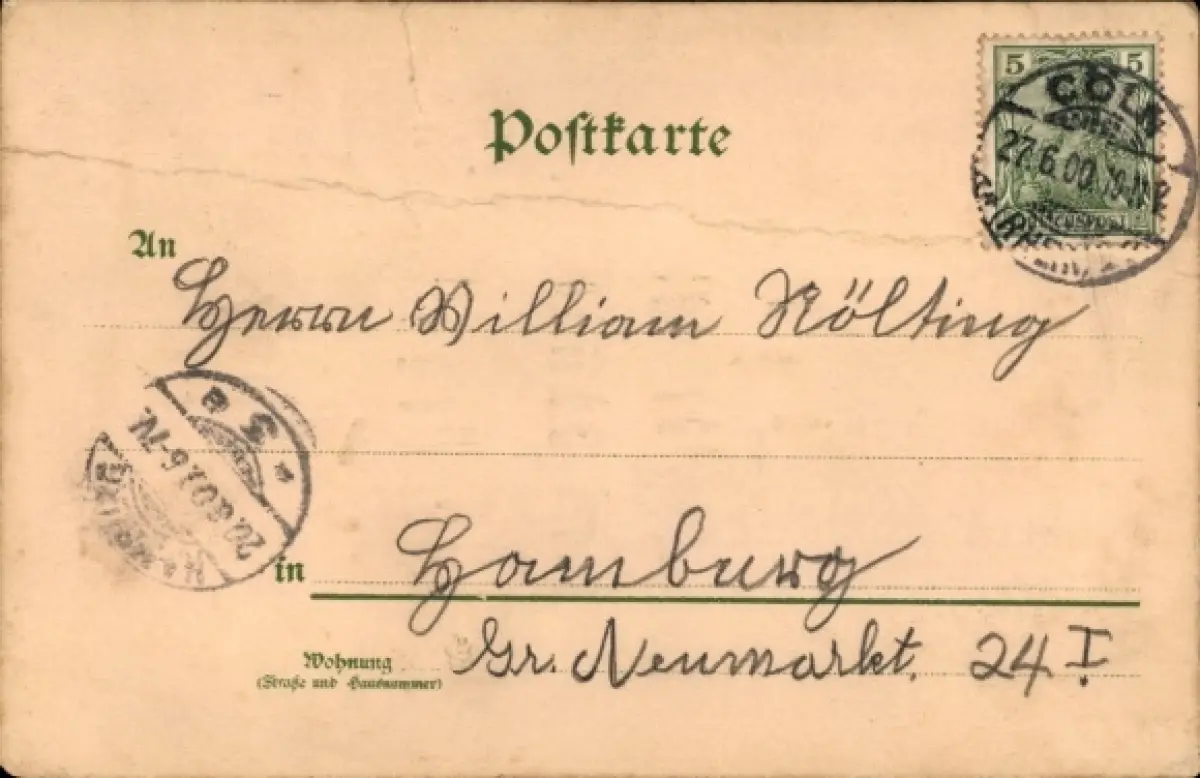 Postkarte
5 5
CÖLN
27.6.00.
(RHEIN)
REICHSPOST
An
Herrn William Nölting
in Hamburg
Wohnung
(Straße und Hausnummer)
Gr. Neumarkt. 24 I.